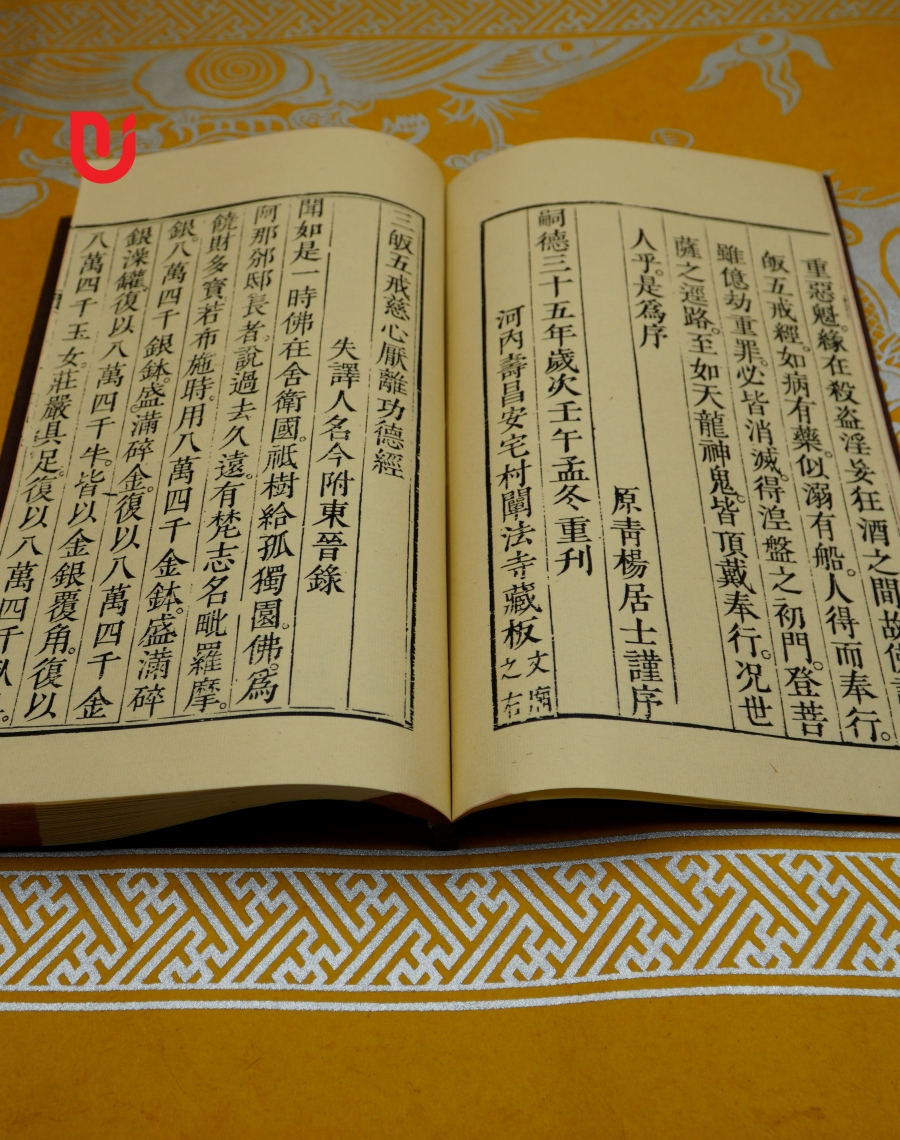 重惡魁。緣在殺盗淫妄狂酒之間故佛
皈五戒經。如病有藥。似溺有船。人得而奉行。
雖億劫重罪。必皆消滅。得湼盤之初門。登菩
薩之逕路。至如天龍神鬼。皆頂戴奉行。况世
人乎。是爲序
原靑楊居士謹序
嗣德三十五年歲次壬午孟冬重刋
河內壽昌安宅村闡法寺藏板
文廟
之右
三皈五戒慈心厭離功德經
失譯人名今附東晉錄
聞如是一時佛在舍衛國。祗樹給孤獨園。佛。爲
阿那邠邸長者。說過去久遠。有梵志名毗羅摩。
饒財多寶。若布施時。用八萬四千金鉢。盛滿碎
銀。八萬四千銀鉢。盛滿碎金。復以八萬四千金
銀澡罐。復以八萬四千牛。皆以金銀覆角。復以
八萬四千玉女。莊嚴具足。復以八萬四千臥